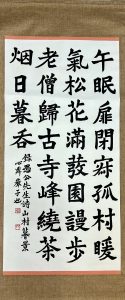 午眠扉閉寂孤村暖
氣松花滿園漫步
老僧歸古寺峰繞茶
烟日暮吞
錄愚公先生詩山村暮景